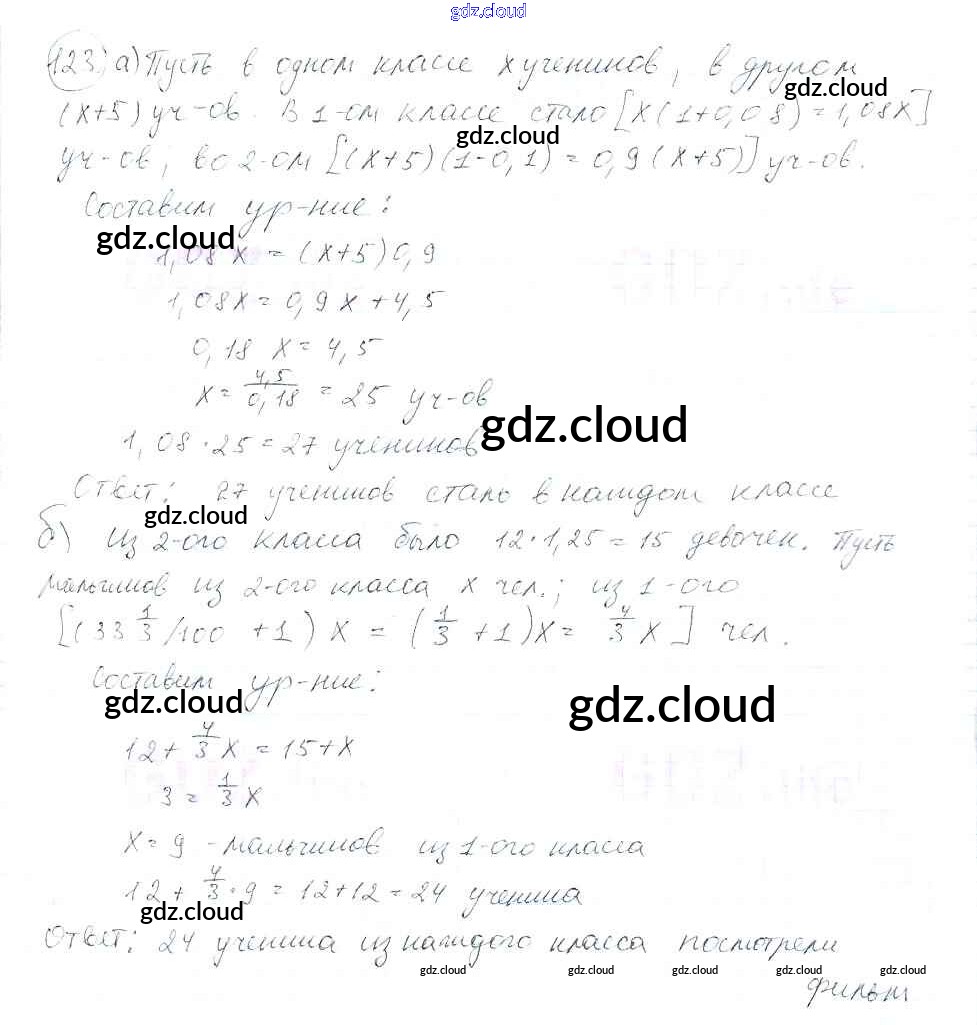 gdz.cloud
123. а) Пусть в одном классе х учеников, в другом
gdz.cloud
(х+5) уч-ов. В 1-ом классе стало [х(1+0,08)=1,08х]
gdz.cloud
уч-ов, во 2-ом [(х+5)(1-0,1) = 0,9(х+5)] уч-ов.
Составим ур-ние:
gdz.cloud
1,08х = (х+5)0,9
1,08х = 0,9х + 4,5
0,18 х = 4,5
х = 4,5/0,18 = 25 уч-ов
gdz.cloud
1,08·25 = 27 учеников
Ответ: 27 учеников стало в каждом классе
gdz.cloud
б) Из 2-ого класса было 12·1,25 = 15 девочек. Пусть
мальчиков из 2-ого класса х чел.; из 1-ого
[(33 1/3 /100 + 1) х = (1/3 + 1)х = 4/3 х] чел.
Составим ур-ние:
gdz.cloud gdz.cloud
12 + 4/3 х = 15 + х
3 = 1/3 х
х = 9 - мальчиков из 1-ого класса
12 + 4/3 · 9 = 12 + 12 = 24 ученика
gdz.cloud
Ответ: 24 ученика из каждого класса посмотрели
gdz.cloud gdz.cloud gdz.cloud gdz.cloud
фильм